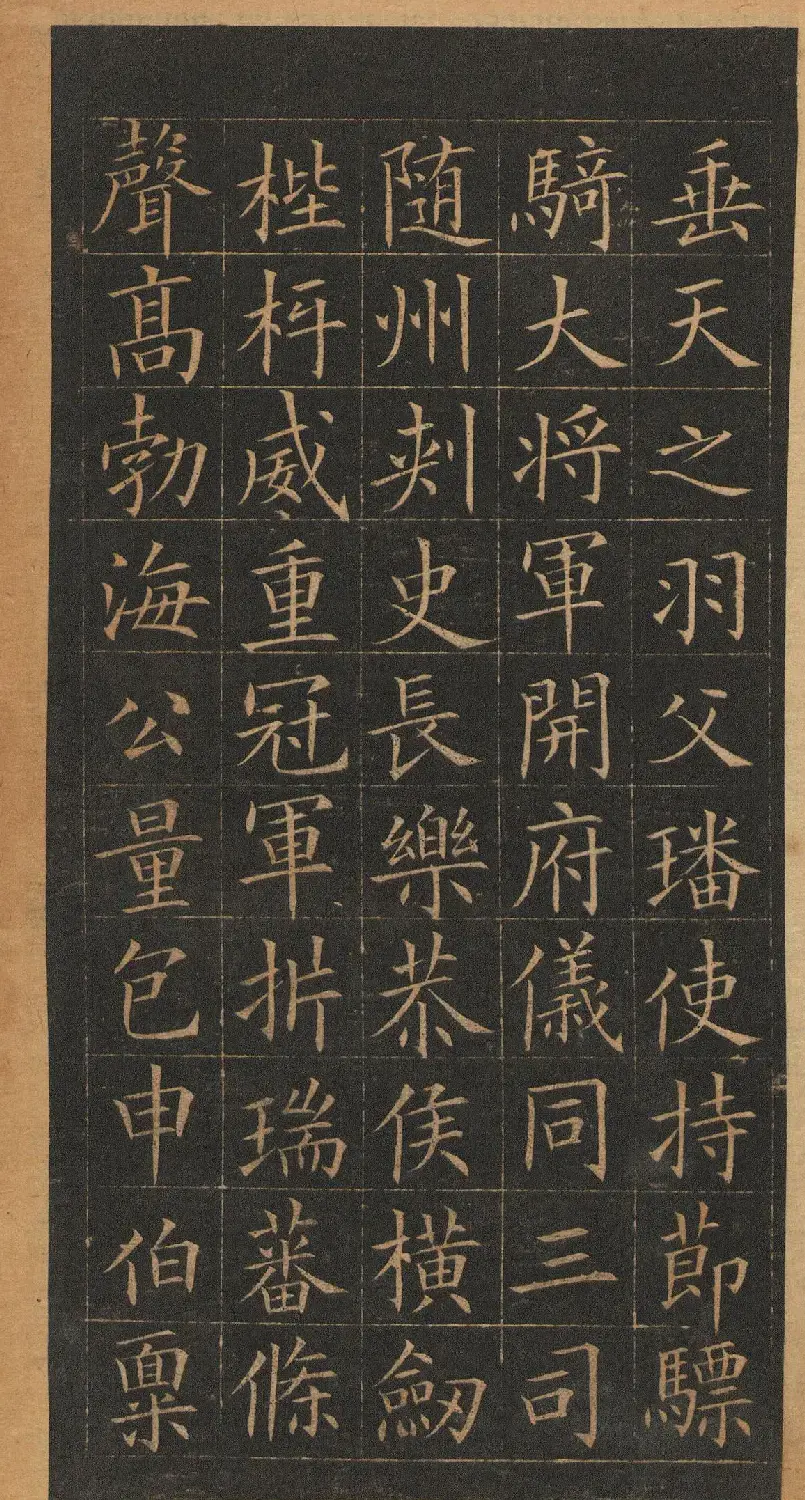 垂天之羽父璠使持莭驃
騎大将軍開府儀同三司
随州刾史長樂恭侯橫劒
梐枑威重冠軍析瑞蕃條
聲髙勃海公量包申伯稟